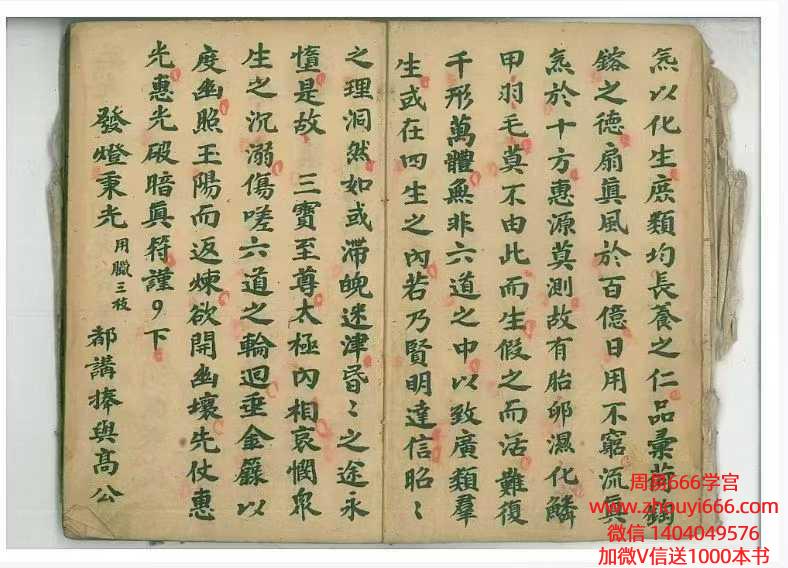 炁以化生庶類均長養之仁品彙荷鈞
鎔之德扇眞風於百億日用不窮流眞
炁於十方惠源莫測故有胎卵濕化鱗
甲羽毛莫不由此而生假之而活難復
千形萬體無非六道之中以致廣類羣
生或在四生之內若乃賢明達信昭〻
之理洞然如或滯魄迷津昏〻之途永
墮是故 三寶至尊太極內相哀憫衆
生之沉溺傷嗟六道之輪迴垂金籙以
度幽照王陽而返煉欲開幽壤先仗惠
光惠光破暗眞符謹9下
發燈秉光 用臘三枝 都講捧與高公
周易666学宫
www.zhouyi666.com
微信 1404049576
加微V信送1000本书